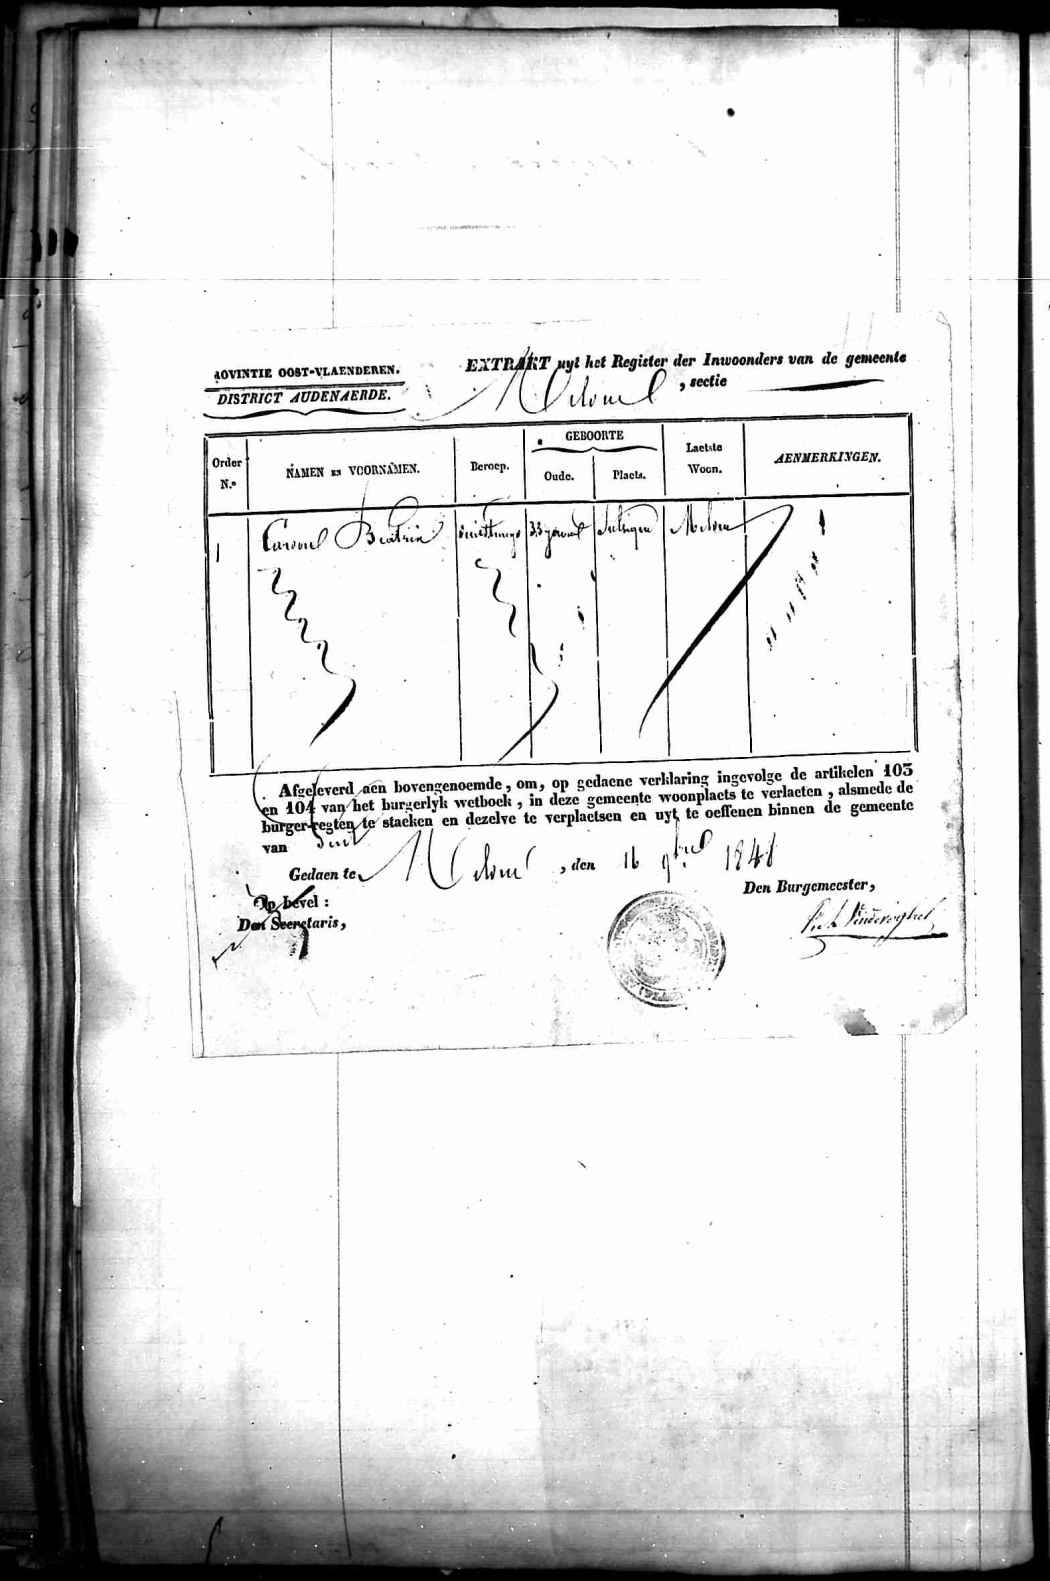 ROVINTIE OOST-VLAENDEREN.
DISTRICT AUDENAERDE.
EXTRAKT uyt het Register der Inwoonders van de gemeente
Melden, sectie
Order N.º
NAMEN EN VOORNAMEN.
Beroep.
GEBOORTE
Oude.
Plaets.
Laetste Woon.
AENMERKINGEN.
1 Beatrix 33 Melden
Afgeleverd aen bovengenoemde, om, op gedaene verklaring ingevolge de artikelen 103
en 104 van het burgerlyk wetboek, in deze gemeente woonplaets te verlaeten, alsmede de
burger-regten te staeken en dezelve te verplaetsen en uyt te oeffenen binnen de gemeente
van
Gedaen te Melden, den 16 9bre 1841
Op bevel:
Den Secretaris,
Den Burgemeester,